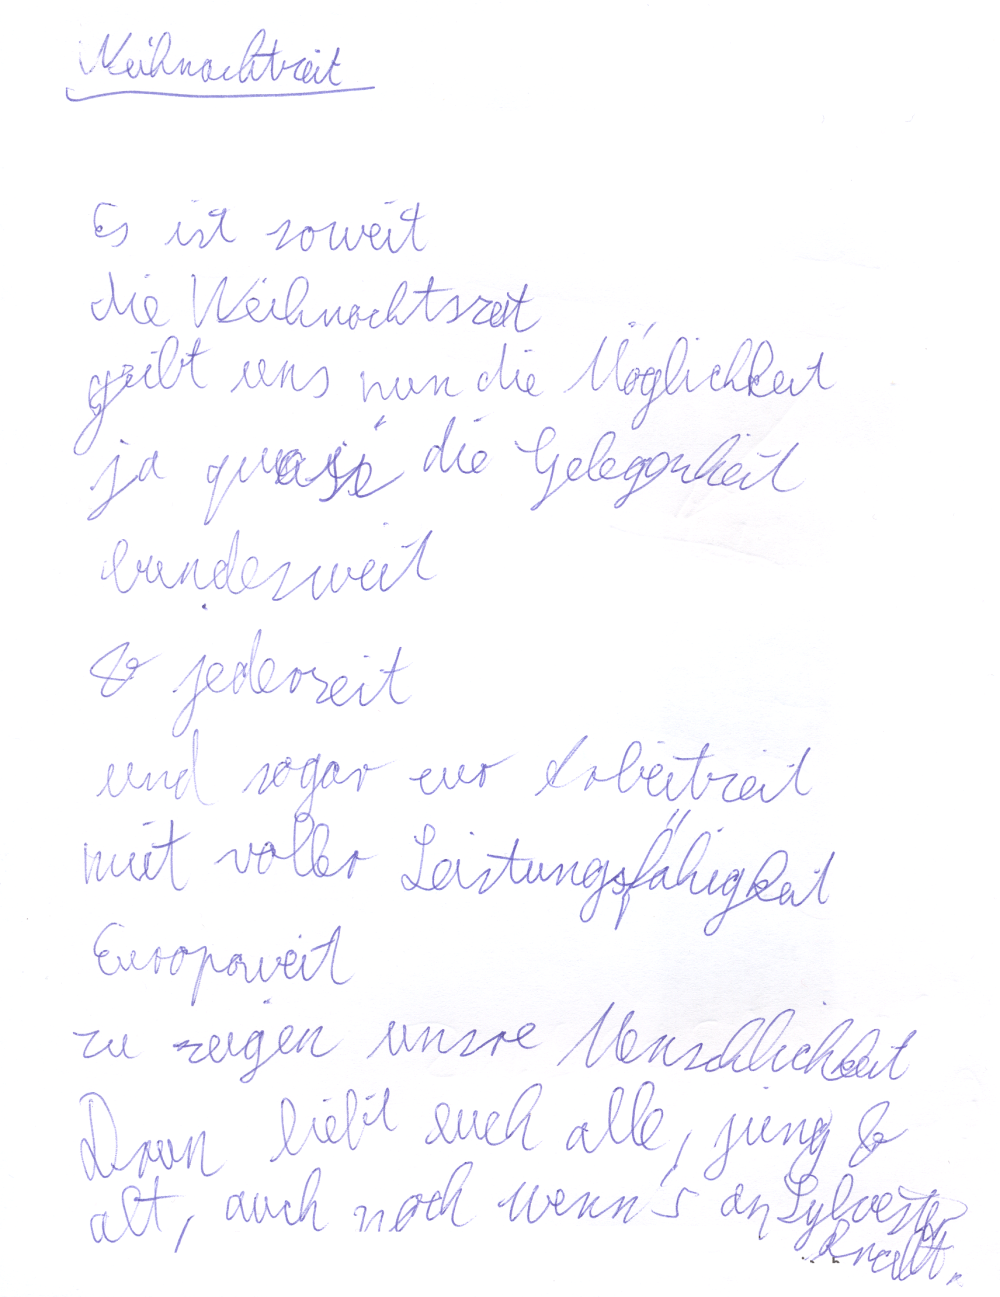 Weihnachtzeit
Es ist soweit
die Weihnachtszeit
gibt uns nun die Möglichkeit
ja quasi die Gelegenheit
bundesweit
& jederzeit
und sogar zur Arbeitzeit
mit voller Leistungsfähigkeit
Europaweit
zu zeigen unsre Menschlichkeit
Drum liebt euch alle, jung &
alt, auch noch wenn's an Sylvester
knallt.